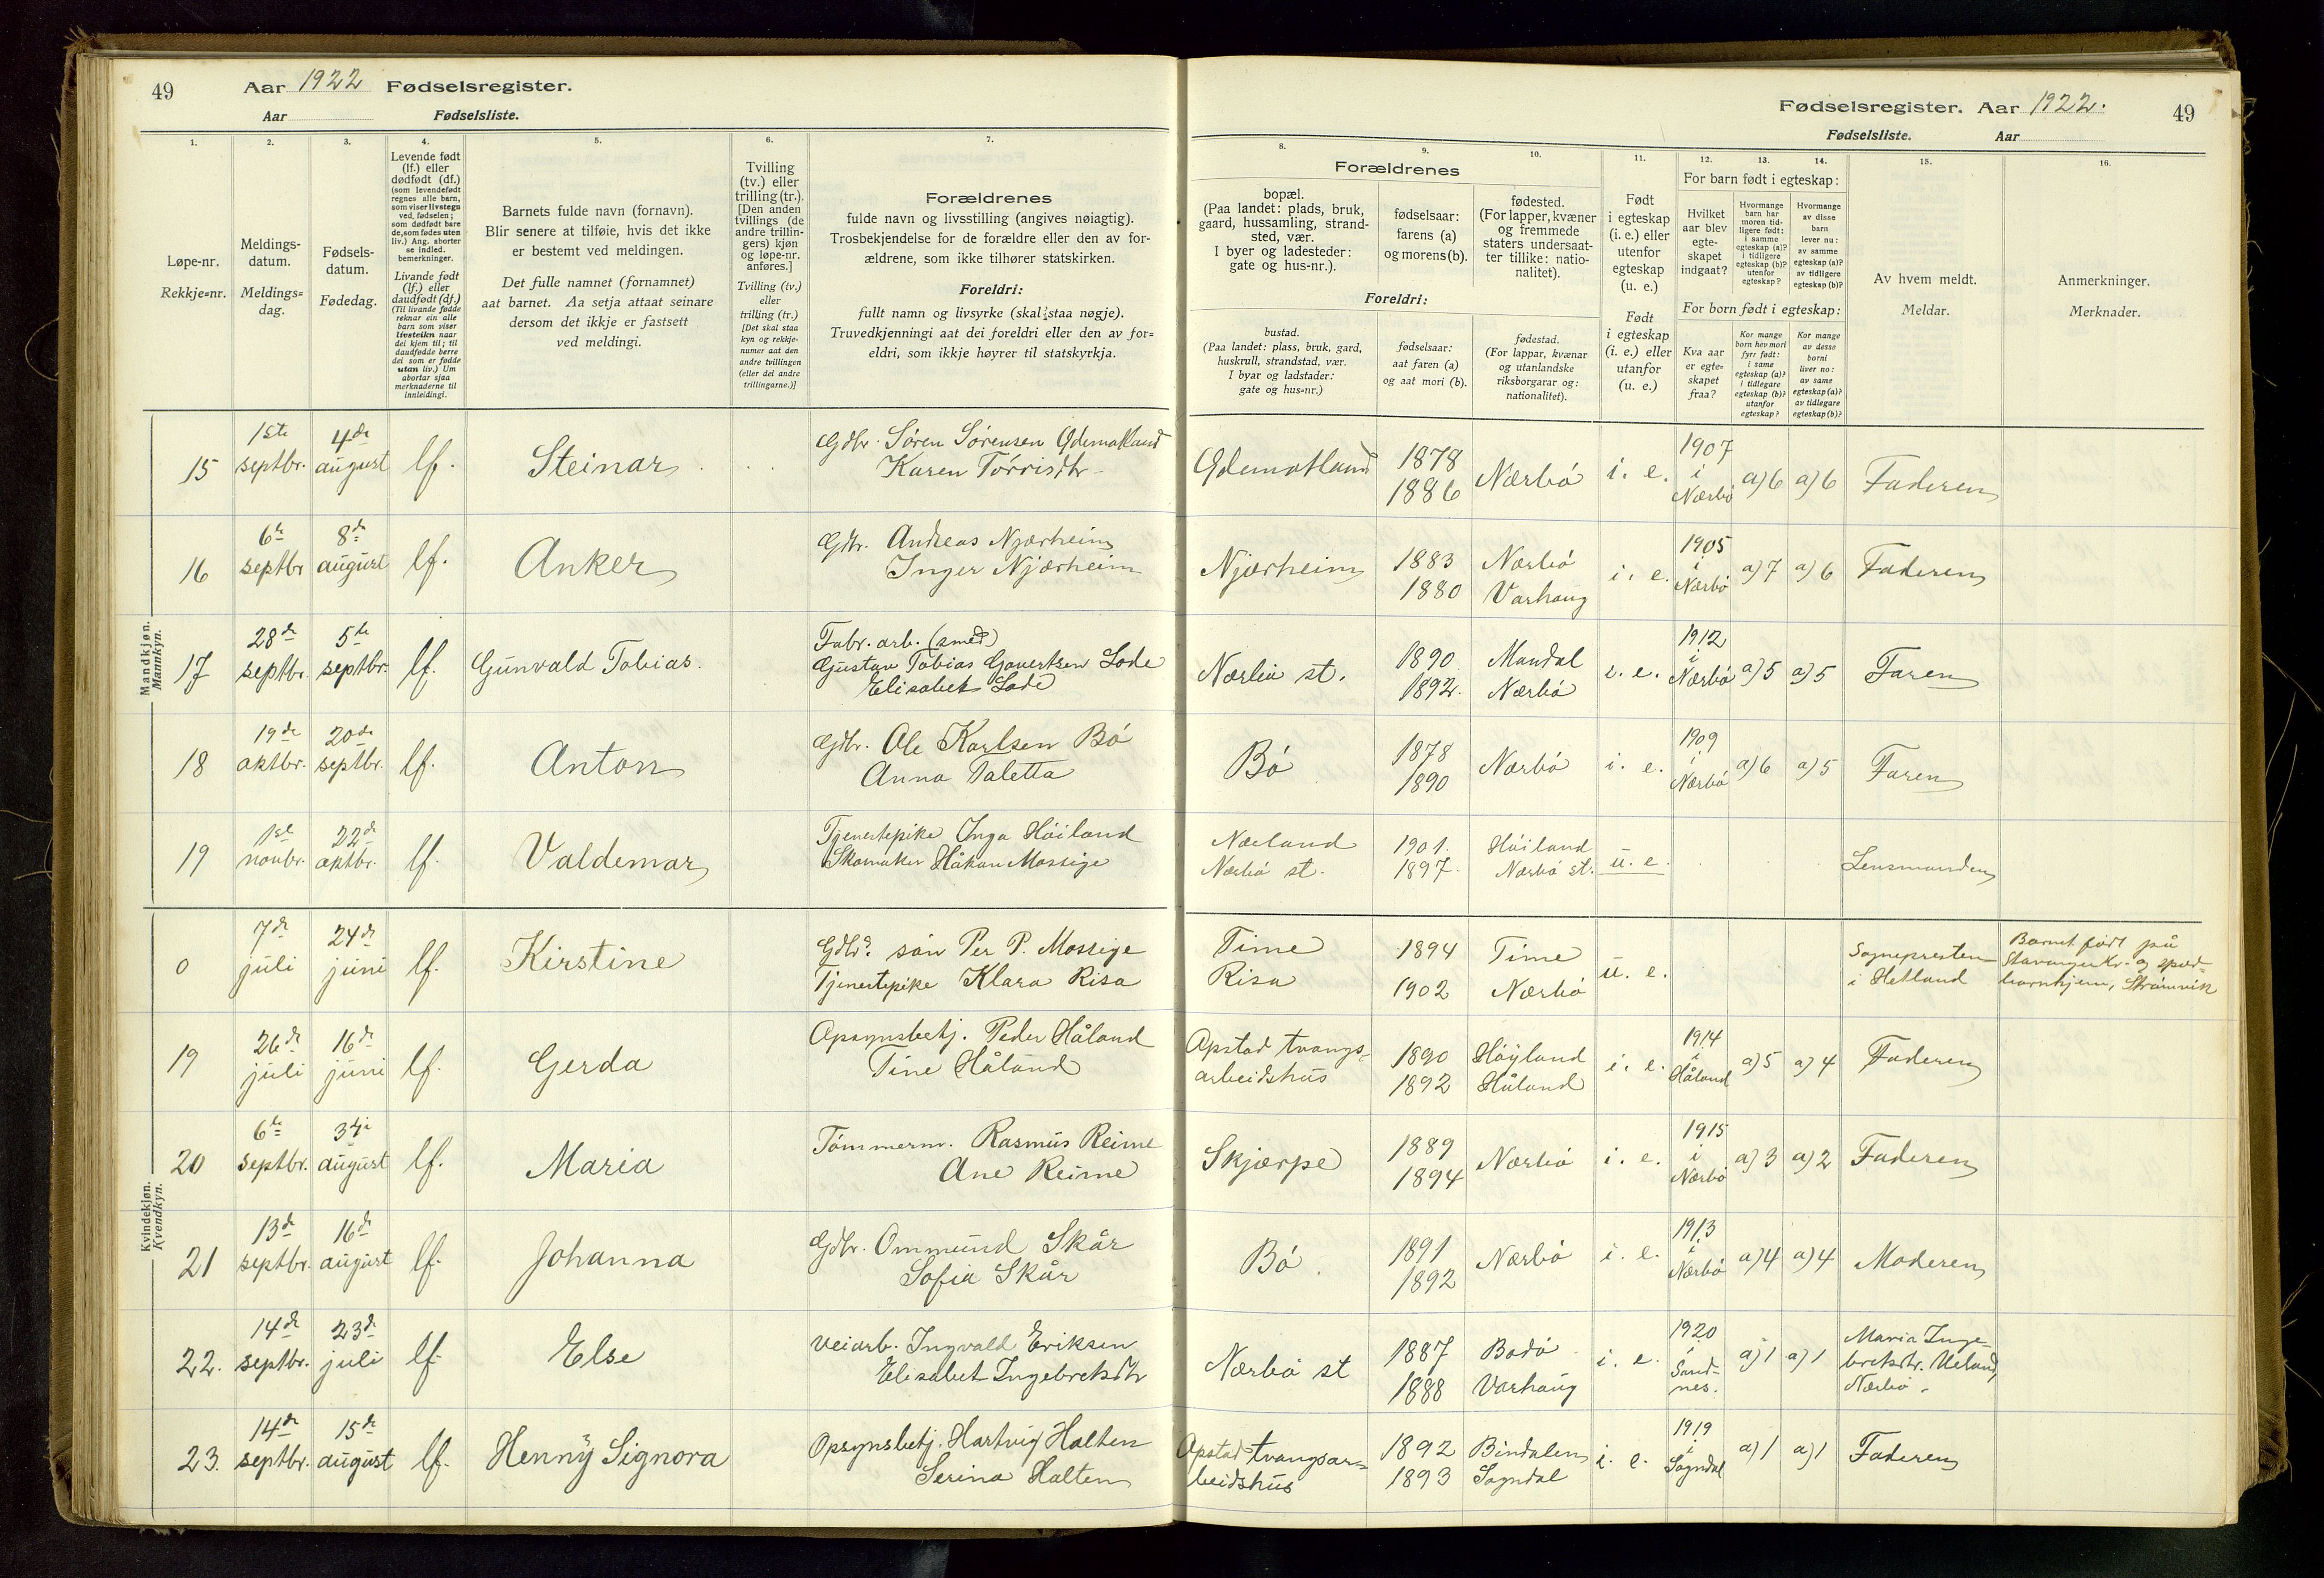 49 Aar 1922 Fødselsregister.
Aar Fødselsliste.
Fødselsregister. Aar 1922. 49
Fødselsliste. Aar
1. 2. 3. 4. 5. 6. 7.
8. 9. 10. 11. 12. 13. 14. 15. 16.
Løpe-nr.
Rekkje=nr.
Meldings-
datum.
Meldings=
dag.
Fødsels-
datum.
Fødedag.
Levende født
(lf.) eller
dødfødt (df.)
(som levendefødt
regnes alle barn,
som viser livstegn
ved fødselen;
som dødfødt bare
de, som fødes uten
liv.) Ang. aborter
se indled.
bemerkninger.
Livande født
(lf.) eller
daudfødt (df.)
(Til livande fødde
reknar ein alle
barn som viser
livsteikn naar
dei kjem til; til
daudfødde berre
dei som er fødde
utan liv.) Um
abortar sjaa
merknaderne til
innleidingi.
Barnets fulde navn (fornavn).
Blir senere at tilføie, hvis det ikke
er bestemt ved meldingen.
Det fulle namnet (fornamnet)
aat barnet. Aa setja attaat seinare
dersom det ikkje er fastsett
ved meldingi.
Tvilling
(tv.) eller
trilling (tr.).
[Den anden
tvillings (de
andre trillin-
gers) kjøn
og løpe-nr.
anføres.]
Tvilling (tv.)
eller
trilling (tr.)
[Det skal staa
kyn og rekkje-
numer aat den
andre tvillingen
(eller dei andre
trillingarne.)]
Forældrenes
fulde navn og livsstilling (angives nøiagtig).
Trosbekjendelse for de forældre eller den av for-
ældrene, som ikke tilhører statskirken.
Foreldri:
fullt namn og livsyrke (skal staa nøgje).
Truvedkjenningi aat dei foreldri eller den av for=
eldri, som ikkje høyrer til statskyrkja.
Forældrenes
bopæl.
(Paa landet: plads, bruk,
gaard, hussamling, strand-
sted, vær.
I byer og ladesteder:
gate og hus-nr.).
fødselsaar:
farens (a)
og morens (b).
fødested.
(For lapper, kvæner
og fremmede
staters undersaat-
ter tillike: natio-
nalitet).
Foreldri:
bustad.
(Paa landet: plass, bruk, gard,
huskrull, strandstad, vær.
I byar og ladstader:
gate og hus=nr.)
fødselsaar:
aat faren (a)
og aat mori (b).
fødestad.
(For lappar, kvænar
og utanlandske
riksborgarar og:
nationalitet).
Født
i egteskap
(i. e.) eller
utenfor
egteskap
(u. e.)
Født
i egteskap
(i. e.) eller
utanfor
(u. e.)
For barn født i egteskap:
Hvilket
aar blev
egte-
skapet
indgaat?
Hvormange
barn har
moren tid-
ligere født:
i samme
egteskap (a)?
i tidligere
egteskap (b)?
utenfor
egteskap?
Hvormange
av disse
barn
lever nu:
av samme
egteskap (a)?
av tidligere
egteskap (b)?
For born født i egteskap:
Kva aar
er egte=
skapet
fraa?
Kor mange
born hev mori
fyrr født:
i same
egteskap (a)?
i tidlegare
egteskap (b)?
utanfor
egteskap?
Kor mange
av desse
borni
liver no:
av same
egteskap (a)?
av tidlegare
egteskap (b)?
Av hvem meldt.
Meldar.
Anmerkninger.
Merknader.
Mandkjøn.
Mannkyn.
15 1ste septbr. 4de august lf. Steinar Gdbr. Søren Sørensen Odemotland
Karen Tørrisdtr. Odemotland 1878 1886 Nærbø i. e. 1907 i Nærbø a) 6 a) 6 Faderen
16 6te septbr 8de august lf. Anker Gbr. Andreas Njærheim
Inger Njærheim Njærheim 1883 1880 Nærbø Varhaug i. e. 1905 i Nærbø a) 7 a) 6 Faderen
17 28de septbr. 5te septbr. lf. Gunvald Tobias. Fabr. arb. (smed)
Gustav Tobias Govertsen Lode
Elisabet Lode Nærbø st. 1890 1892. Mandal Nærbø i. e. 1912 i Nærbø a) 5 a) 5 Faren
18 19de oktbr. 20de septbr. lf. Anton Gdbr. Ole Karlsen Bø
Anna Taletta Bø 1878 1890 Nærbø i. e. 1909 i Nærbø a) 6 a) 5 Faren
19 1ste novbr. 22de oktbr. lf. Valdemar Tjenestepike Inga Høiland
Skomaker Håkon Mossige Nærland Nærbø st. 1901. 1897. Høiland Nærbø st. u. e. Lensmanden
Kvindekjøn.
Kvendkyn.
0 7de juli 24de juni lf. Kirstine Gdbr. søn Per P. Mossige
Tjenestepike Klara Risa Time Risa 1894 1902 Time Nærbø u. e. Sognepresten i Hetland Barnet født på
Stavanger kv. og sped-
barnhjem, Strømvik
19 26de juli 16de juni lf. Gerda Opsynsbetj. Peder Håland
Tine Håland Opstad tvangs-
arbeidshus 1890 1892 Høyland Håland i. e. 1914 i Håland a) 5 a) 4 Faderen
20 6te septbr. 3dje august lf. Maria Tømmerm. Rasmus Reime
Ane Reime Skjærpe 1889 1894 Nærbø i. e. 1915 i Nærbø a) 3 a) 2 Faderen
21 13de septbr. 16de august lf. Johanna Gdbr. Ommund Skår
Sofia Skår Bø. 1891 1892 Nærbø i. e. 1913 i Nærbø a) 4 a) 4 Moderen
22. 14de septbr. 23de juli lf. Else Veiarb. Ingvald Eriksen
Elisabet Ingebretsdtr Nærbø st 1887 1888 Bodø Varhaug i. e. 1920 i Sand-
nes. a) 1 a) 1 Maria Inge-
bretsdtr. Ueland,
Nærbø.
23. 14de septbr. 15de august lf. Henny Signora Opsynsbetj. Hartvig Holten
Serina Holten Opstad tvangsar-
beidshus 1892 1893 Bindalen Sogndal i. e. 1919 i Sogndal a) 1 a) 1 Faderen